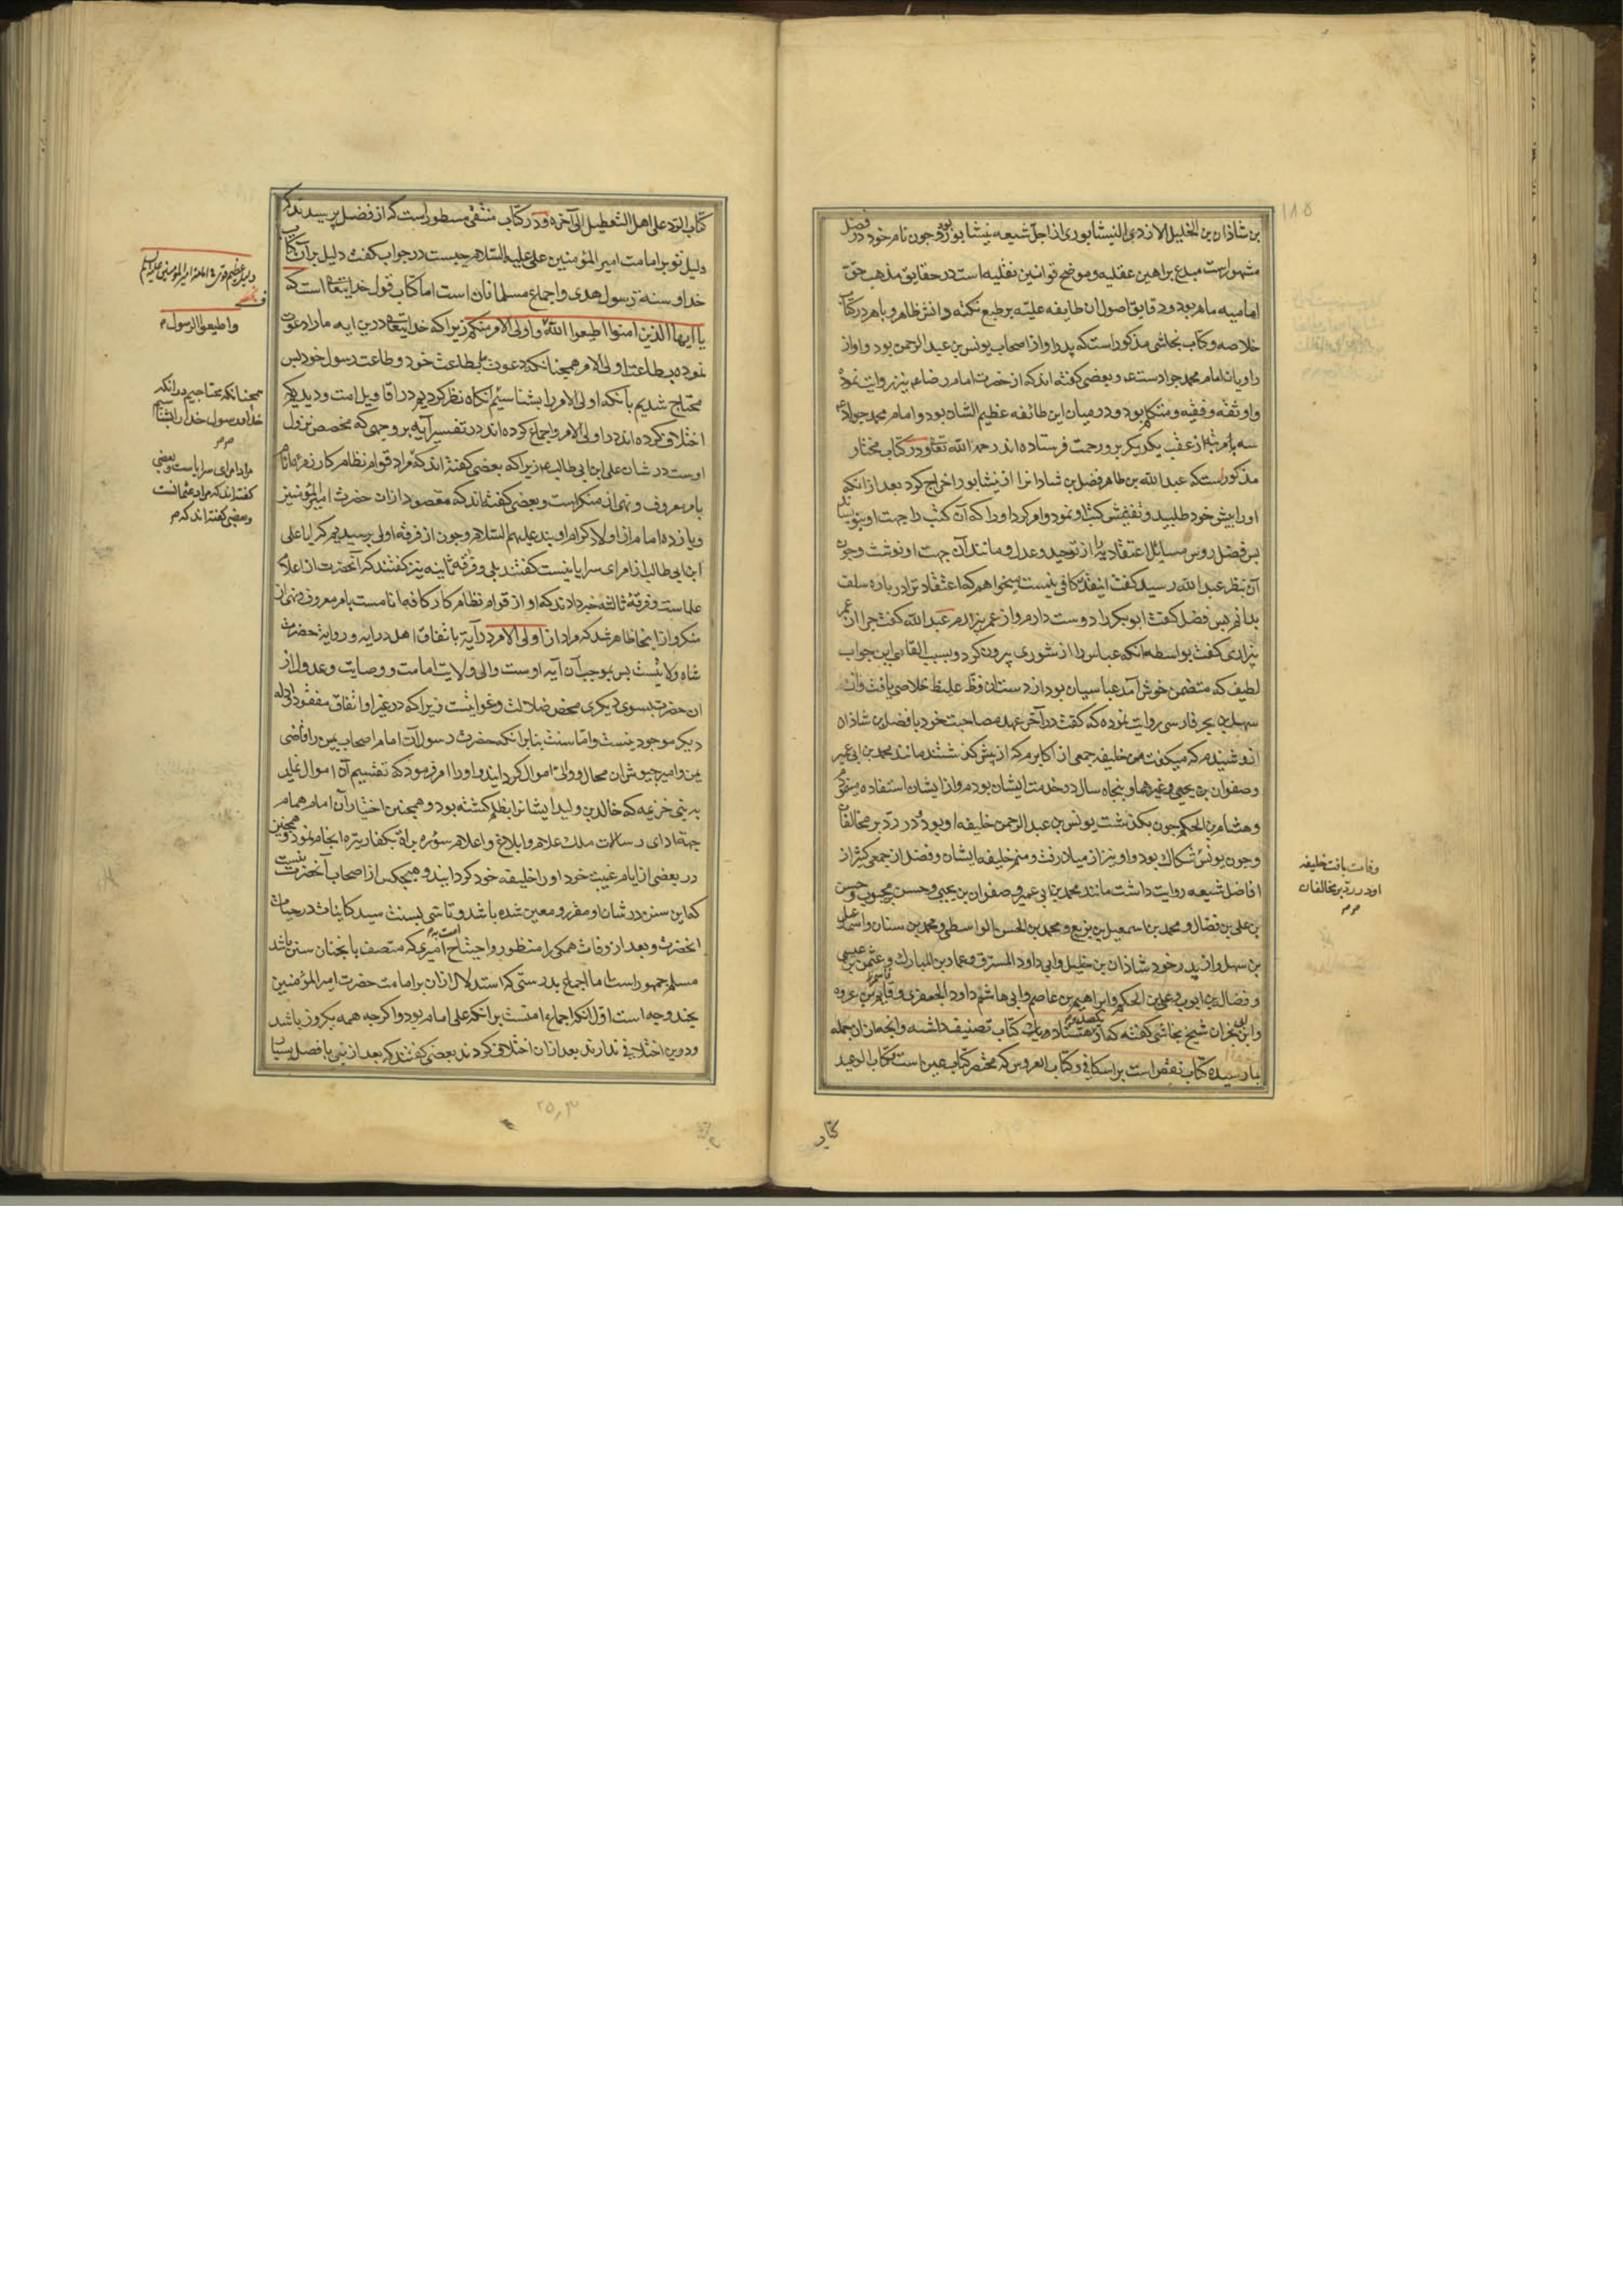 بن شاذان بن الخلیل الازدی النیشابوری از اجل شیعه نیشابور بود و چون نام خود در فضل
مشهور است مبدع براهین عقلیه و موضح قوانین نقلیه است در حقایق مذهب حق
امامیه ماهر بود و دقایق اصول ان طایفه علیّه بر طبع نکته دانش ظاهر و باهر در کتاب
خلاصه و کتاب نجاشی مذکور است که پدر او از اصحاب یونس بن عبد الرحمن بود و او از
راویان امام محمد جواد ست عم و بعضی گفته اند که از حضرت امام رضا عم نیز روایت نموده
و او ثقه و فقیه و متکلم بود و در میان این طائفه عظیم الشان بود و امام محمد جواد عم
سه بار از عقب یکدیگر برو رحمت فرستاده اند رحمه الله تعالی و در کتاب مختار
مذکور است که عبد الله بن طاهر فضل بن شاذانرا از نیشابور اخراج کرد بعد از انکه
او را پیش خود طلبید و تفتیش کتب او نمود و امر کرد او را که آن کتب را جهت او بنویسد
پس فضل روس مسایل اعتقادیه را از توحید و عدل و مانند آن جهت او نوشت و چون
آن بنظر عبد الله رسید گفت اینقدر کافی نیست میخواهم که اعتقاد ترا در باره سلف
بدانم پس فضل گفت ابو بکر را دوست دارم و از عمر بیزارم عبد الله گفت چرا از عمر
بیزاری گفت بواسطه انکه عباس را از شوری بیرون کرد و بسبب القای این جواب
لطیف که متضمن خوش آمد عباسیان بود از دست ان فظ غلیظ خلاصی یافت و از
سهل بن بحر فارسی روایت نموده که گفت در آخر عهد مصاحبت خود با فضل بن شاذان
ازو شنیدم که میگفت من خلیفه جمعی از اکابرم که از پیش گذشتند مانند محمد بن ابی عمیر
و صفوان بن یحیی و غیرهما و پنجاه سال در خدمت ایشان بودم و از ایشان استفاده مینمودم
و هشام بن الحکم چون بگذشت یونس بن عبد الرحمن خلیفه او بود در رد بر مخالفان
و چون یونس سکاک بود و او نیز از میان رفت و منم خلیفه ایشان و فضل از جمعی کثیر از
افاضل شیعه روایت داشت مانند محمد بن ابی عمیر و صفوان بن یحیی و حسن بن محبوب و حسن
بن علی بن فضال و محمد بن اسمعیل بن بزیع و محمد بن الحسن الواسطی و محمد بن سنان و اسمعیل
بن سهل و از پدر خود شاذان بن خلیل و ابی داود المسترق و عمار بن المبارک و عثمن بن عیسی
و فضالة بن ایوب و علی بن الحکم و ابراهیم بن عاصم و ابی هاشم داود الجعفری و قاسم بن عروه
و ابن ابی نجران شیخ نجاشی گفته که او یکصد و هشتاد کتاب تصنیف داشته و انچه از ان جمله
بما رسیده کتاب نقض است بر اسکافی و کتاب العروس که مختصر کتاب عین است و کتاب الوعید
وفات یافت خلیفه
او در رد بر مخالفان
۱۸۵
کتاب
کتاب الرد علی اهل التعطیل الی آخره و در کتاب منتقی مسطور است که از فضل پرسیدند که
دلیل تو بر امامت امیر المؤمنین علی علیه السلام چیست در جواب گفت دلیل بر آن کتاب
خدا و سنة رسول هدی و اجماع مسلمانان است اما کتاب قول خدایتعالی است که
یا ایها الذین امنوا اطیعوا الله و اولی الامر منکم زیرا که خدایتعالی درین ایه ما را دعوت
نموده بطاعت اولی الامر همچنانکه دعوت بطاعت خود و طاعت رسول خود پس
محتاج شدیم بآنکه اولی الامر را بشناسیم انگاه نظر کردیم در اقاویل امت و دیدیم که
اختلاف کرده اند در اولی الامر و اجماع کرده اند در تفسیر آیه بر وجهی که مخصص نزول
اوست در شان علی ابن ابی طالب عم زیرا که بعضی گفته اند که مراد قوام نظام کار زمره انام
بامر معروف و نهی از منکر است و بعضی گفته اند که مقصود از ان حضرت امیر المؤمنین
و یازده امام از اولاد کرام اویند علیهم السلام و چون از فرقه اولی پرسیدیم که ایا علی
ابن ابی طالب از امرای سرایا نیست گفتند بلی و فرقه ثانیه نیز گفتند که آنحضرت از اعلام
علماست و فرقه ثالثه خبر دادند که او از قوام نظام کار کافه انامست بامر معروف و نهی از
منکر و از اینجا ظاهر شد که مراد از اولی الامر در آیة باتفاق اهل درایه و روایة حضرت
شاه ولایتست پس بموجب آن آیه اوست والی ولایت امامت و وصایت و عدول از
ان حضرت بسوی دیگری محض ضلالت و غوایتست زیرا که در غیر او اتفاق مفقود و دلیل
دیگر موجود نیست و اما سنت بنابر انکه حضرت رسول آن امام اصحاب یمین را قاضی
یمن و امیر جیوش ان محال و والی اموال گردانید و او را امر فرمود که تقسیم آن اموال نماید
به بنی خزیمه که خالد بن ولید ایشانرا بظلم کشته بود و همچنین اختیار آن امام همام
جهة ادای رسالات ملک علام و ابلاغ و اعلام سوره براة بکفار تیره انجام نمود و همچنین
در بعضی از ایام غیبت خود او را خلیفه خود گردانید و هیچکس از اصحاب آنحضرت نیست
که این سنن در شان او مقرر و معین شده باشد و تاسی بسنت سید کاینات در حیات
انحضرت و بعد از وفات همگی را منظور و احتیاج امت به امیری که متصف بانچنان سنن باشد
مسلم جمهور است اما اجماع بدرستی که استدلال از ان بر امامت حضرت امیر المؤمنین
بچند وجه است اول انکه اجماع امتست بر انکه علی امام بود و اگر چه همه یکروز باشد
و درین اختلافی ندارند بعد از ان اختلاف کردند بعضی گفتند که بعد از نبی بافصل بسیار
و اطیعوا الرسول
همچنانکه محتاجیم بدانکه
خدا و رسول خدا را بشناسیم
مراد امرای سرایاست و بعضی
گفته اند که مراد علماست
و بعضی گفته اند که